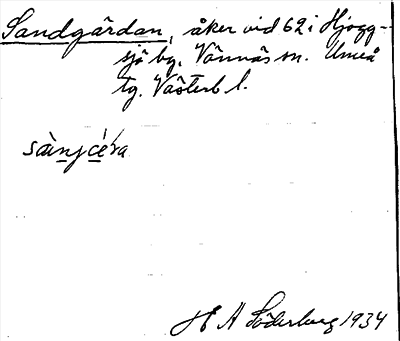 Sandgärdan, åker vid 62 i Hjogg-
sjö by, Vännäs sn. Umeå
tg. Västerb l.
H A Söderberg 1934